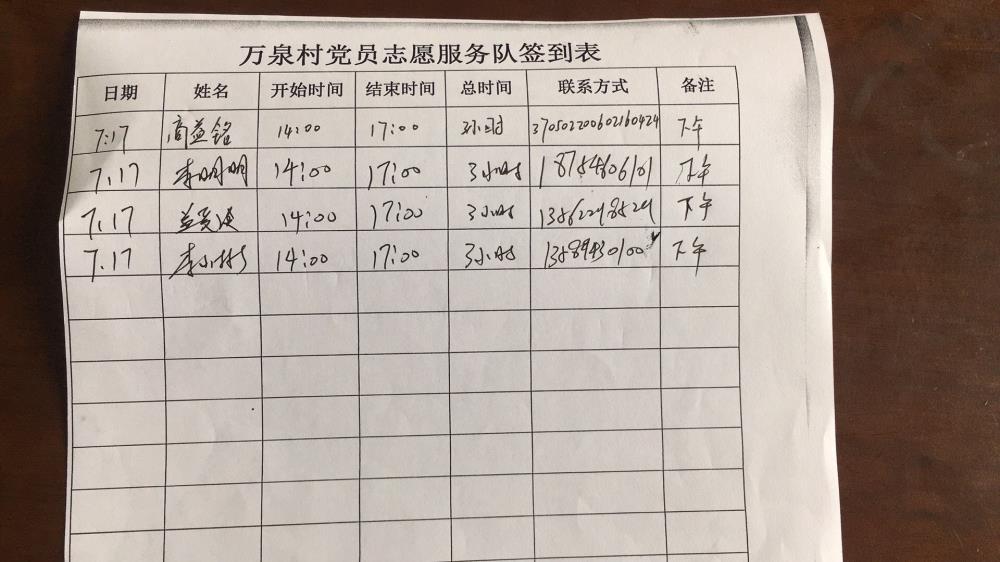 万泉村党员志愿服务队签到表
日期 姓名 开始时间 结束时间 总时间 联系方式 备注
7.17 高益铭 14:00 17:00 3小时 370502200602160424 下午
7.17 李明明 14:00 17:00 3小时 18754606101 下午
7.17 14:00 17:00 3小时 13562248524 下午
7.17 李小彬 14:00 17:00 3小时 13589430100 下午